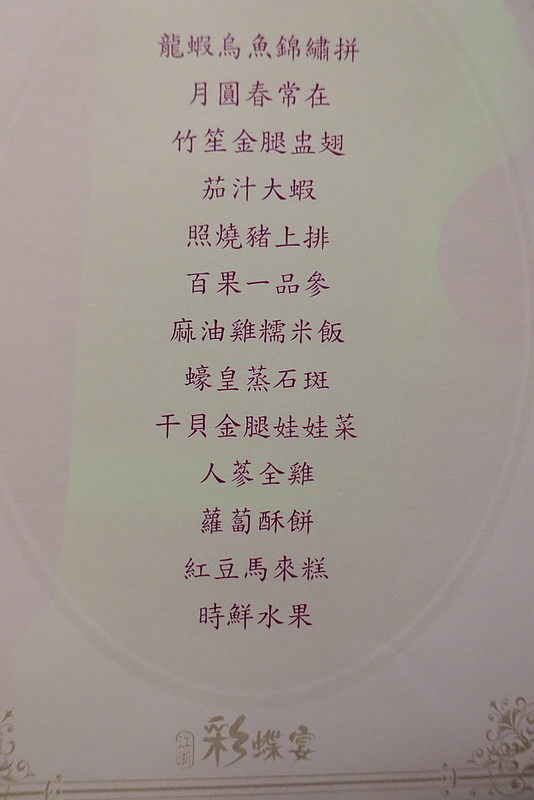 龍蝦烏魚錦繡拼
月圓春常在
竹笙金腿盅翅
茄汁大蝦
照燒豬上排
百果一品參
麻油雞糯米飯
蠔皇蒸石斑
干貝金腿娃娃菜
人蔘全雞
蘿蔔酥餅
紅豆馬來糕
時鮮水果
江浙 彩蝶宴